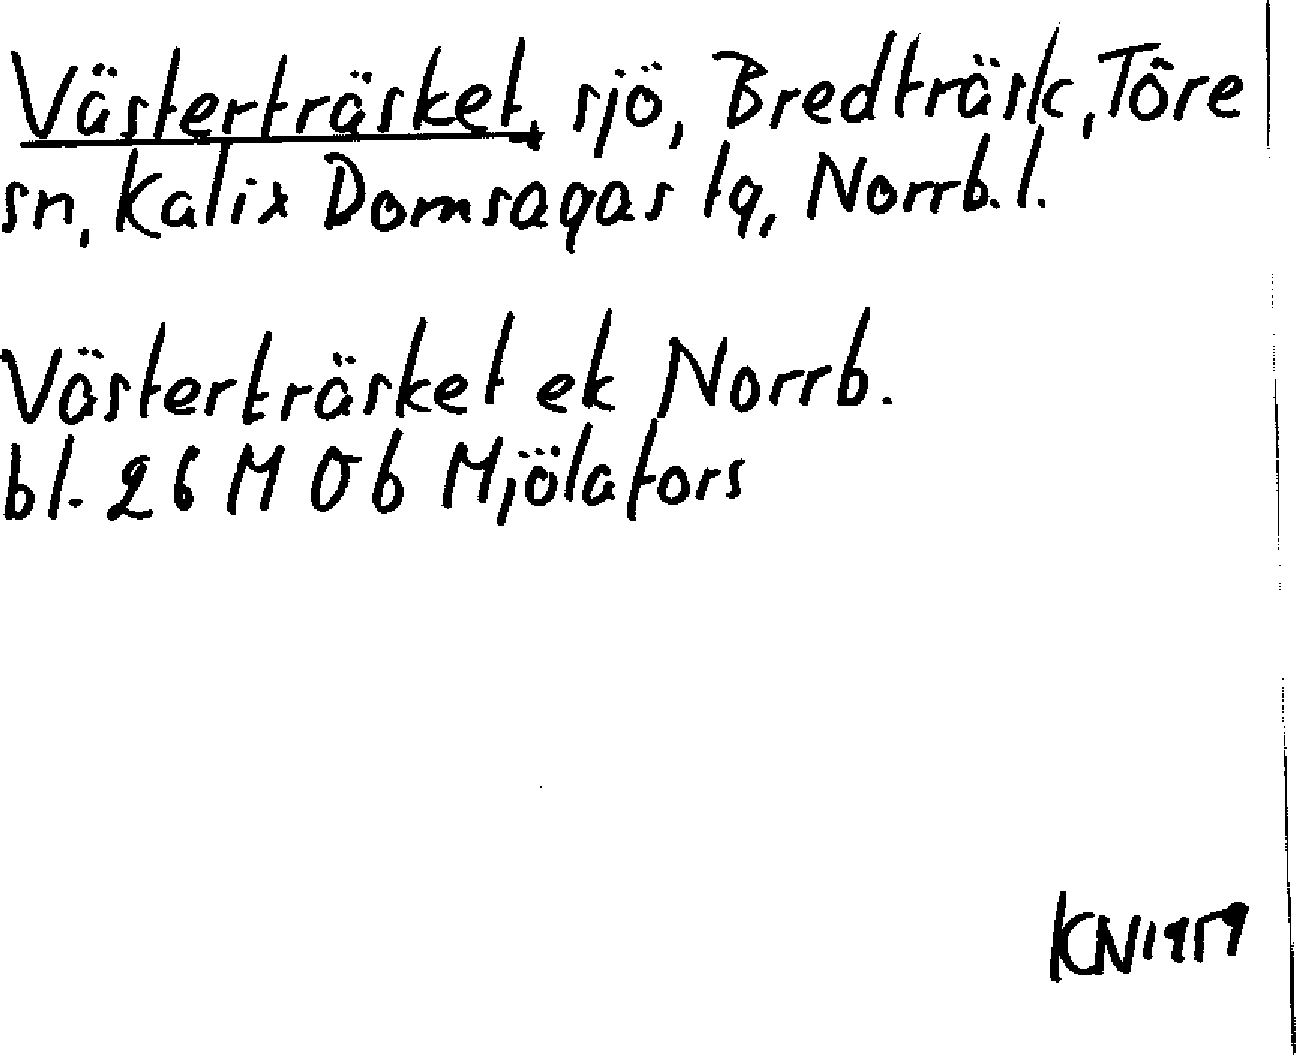 Västerträsket, sjö, Bredträsk, Töre
sn, Kalix Domsagas tg, Norrb. l.
Västerträsket ek Norrb.
bl. 26 M 0b Mjölafors